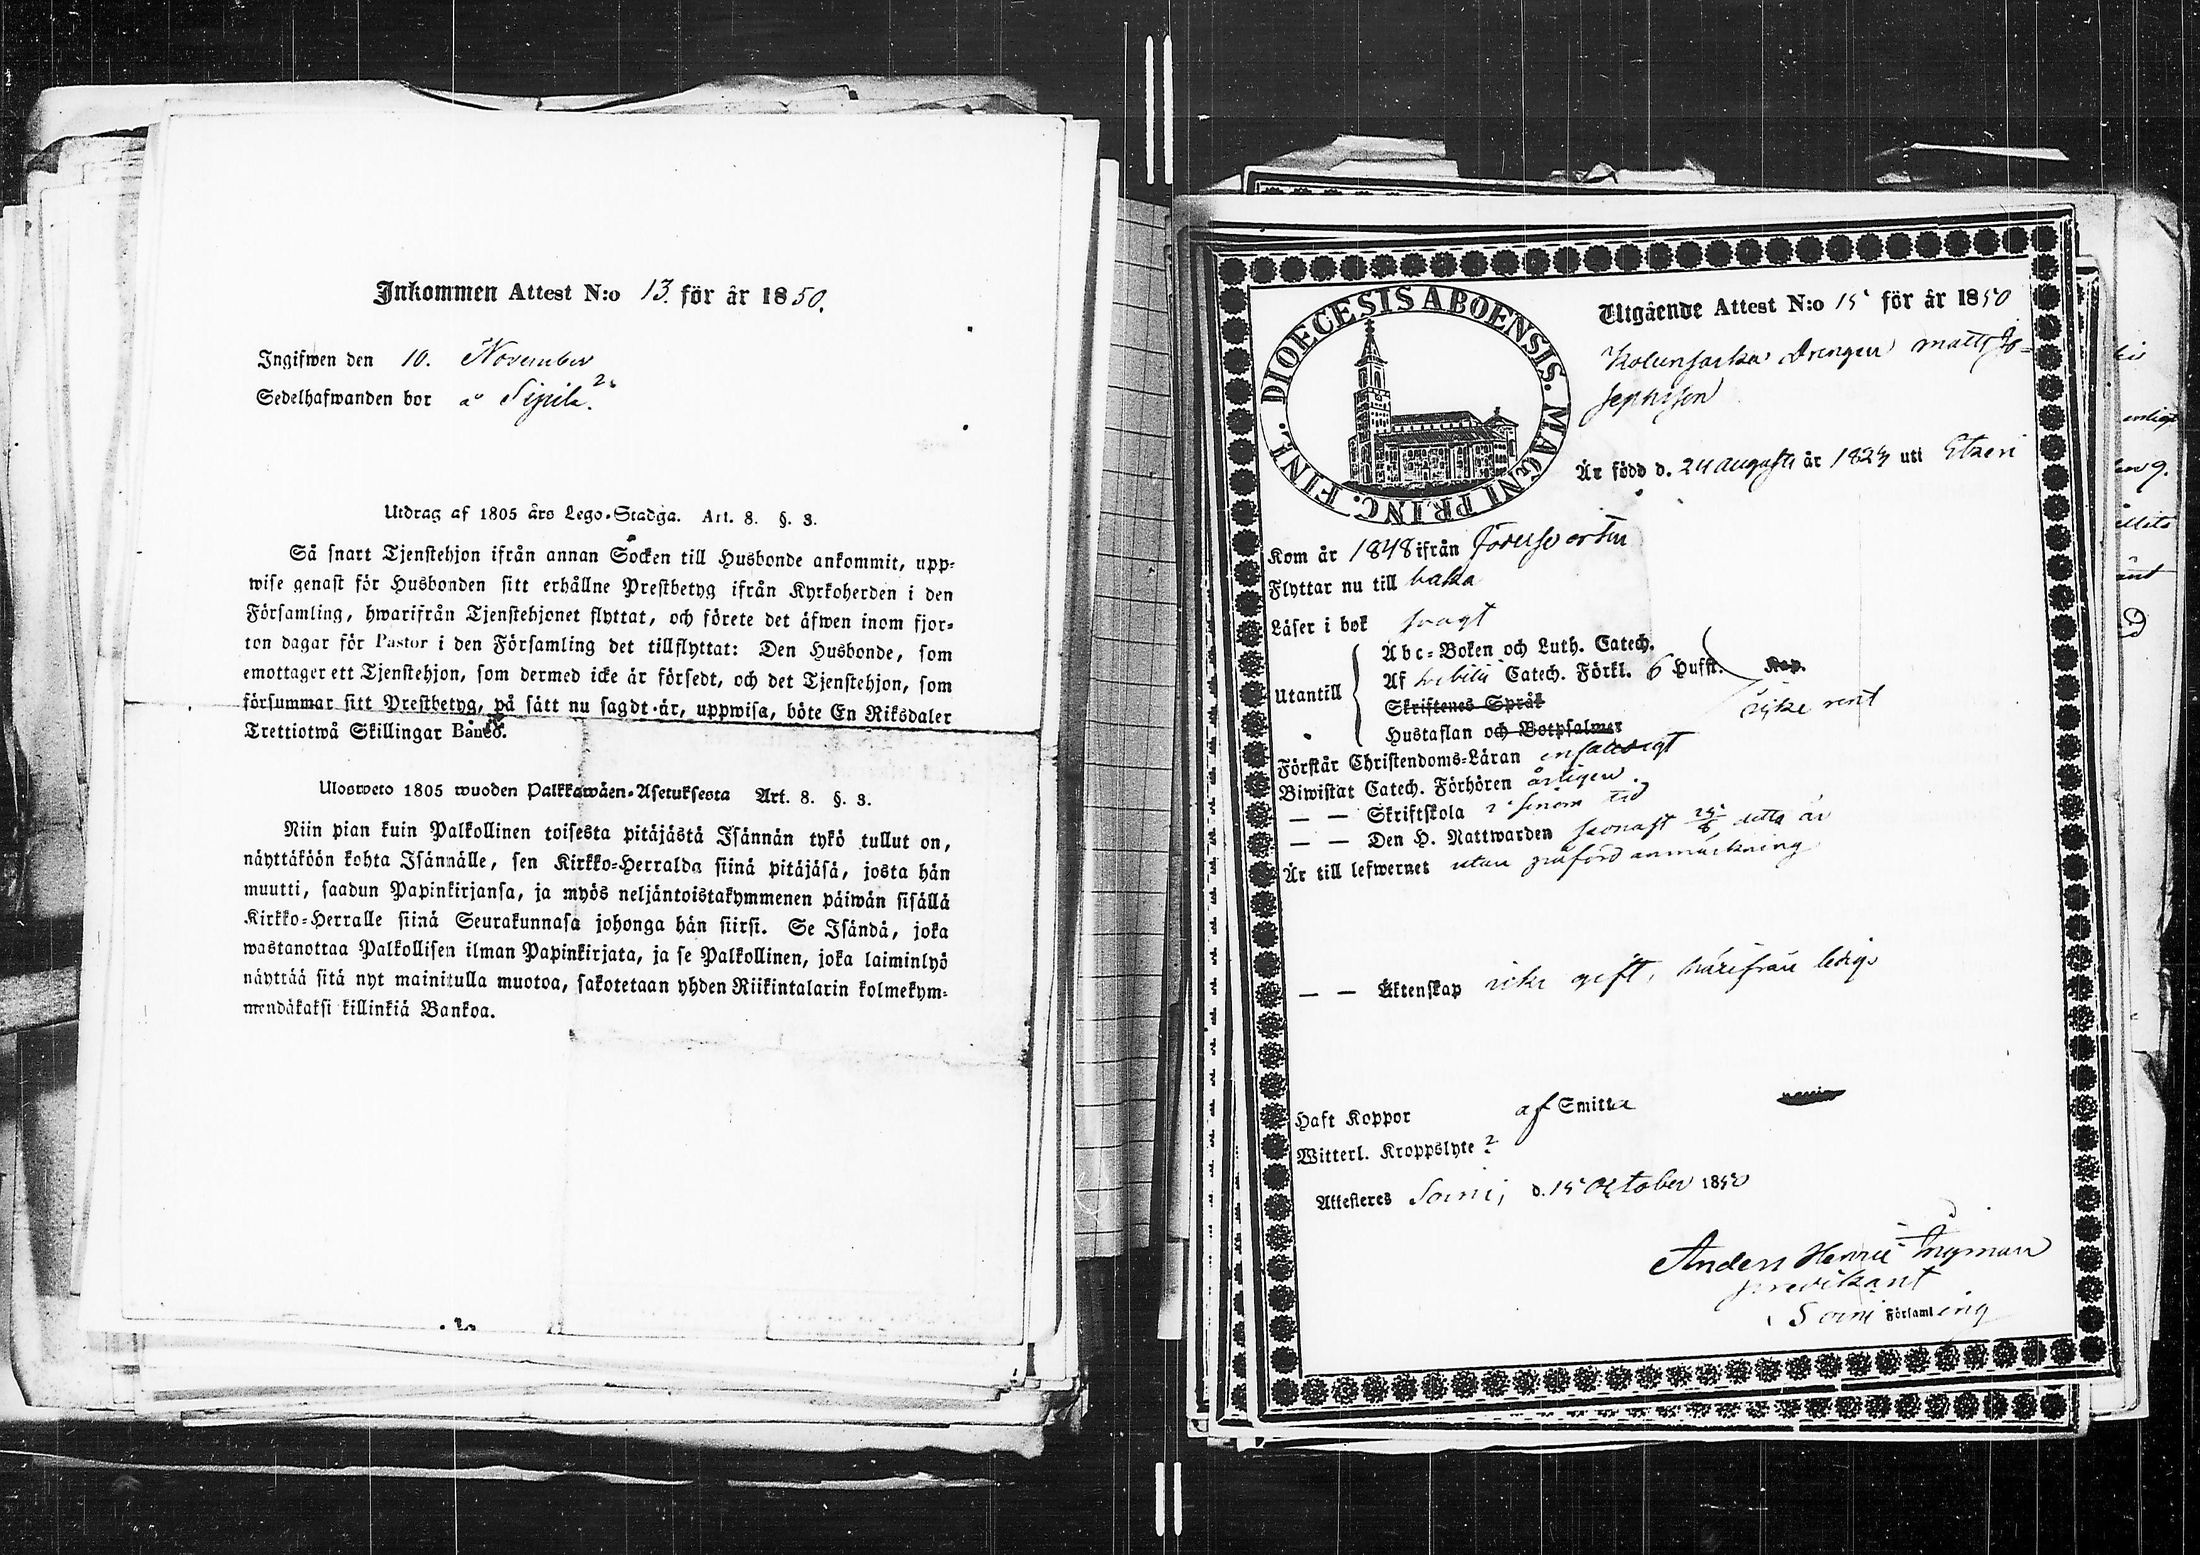 Inkommen Attest N:o 13. för år 1850.
Ingifwen den 10. November
Sedelhafwanden bor å Sipilä.
Utdrag af 1805 års Lego-Stadga. Art. 8. §. 3.
Så snart Tjenstehjon ifrån annan Socken till Husbonde ankommit, upp-
wise genast för Husbonden sitt erhållne Prestbetyg ifrån Kyrkoherden i den
Församling, hwarifrån Tjenstehjonet flyttat, och förete det äfwen inom fjor-
ton dagar för Pastor i den Församling det tillflyttat: Den Husbonde, som
emottager ett Tjenstehjon, som dermed icke är försedt, och det Tjenstehjon, som
försummar sitt Prestbetyg, på sätt nu sagdt är, uppwisa, böte En Riksdaler
Trettiotwå Skillingar Banco.
Ulosweto 1805 wuoden Palkkawäen-Asetuksesta Art. 8. §. 3.
Niin pian kuin Palkollinen toisesta pitäjästä Isännän tykö tullut on,
näyttäköön kohta Isännälle, sen Kirkko-Herralda siinä pitäjäsä, josta hän
muutti, saadun Papinkirjansa, ja myös neljäntoistakymmenen päiwän sisällä
Kirkko-Herralle siinä Seurakunnasa johonga hän siirsi. Se Isändä, joka
wastanottaa Palkollisen ilman Papinkirjata, ja se Palkollinen, joka laiminlyö
näyttää sitä nyt mainitulla muotoa, sakotetaan yhden Riikintalarin kolmekym-
mendäkaksi killinkiä Bankoa.
DIOECESIS ABOENSIS. MAGNI PRINC. FINL.
Utgående Attest N:o 15 för år 1850
Drengen Matts Jo-
sephsson
Är född d. 24 Augusti år 1823 uti Etseri
Kom år 1848 ifrån födelseorten
Flyttar nu till baka
Läser i bok svagt
Utantill
Abc-Boken och Luth. Catech.
Af Catech. Förkl. 6 Hufst. Kap.
Skriftenes Språk
icke rent
Hustaflan och Botpsalmer
Förstår Christendoms-Läran enfaldigt
Biwistat Catech. Förhören årligen
— — Skriftskola i sinom tid
— — Den H. Nattwarden senast 25/8 detta år
Är till lefwernet utan anmärkning
— — Äktenskap icke gift, härifrån ledig
Haft Koppor af Smitta
Witterl. Kroppslyte ?
Attesteres Soini, d. 15 October 1850
Anders Henric Ingman
predikant
i Soini Församling